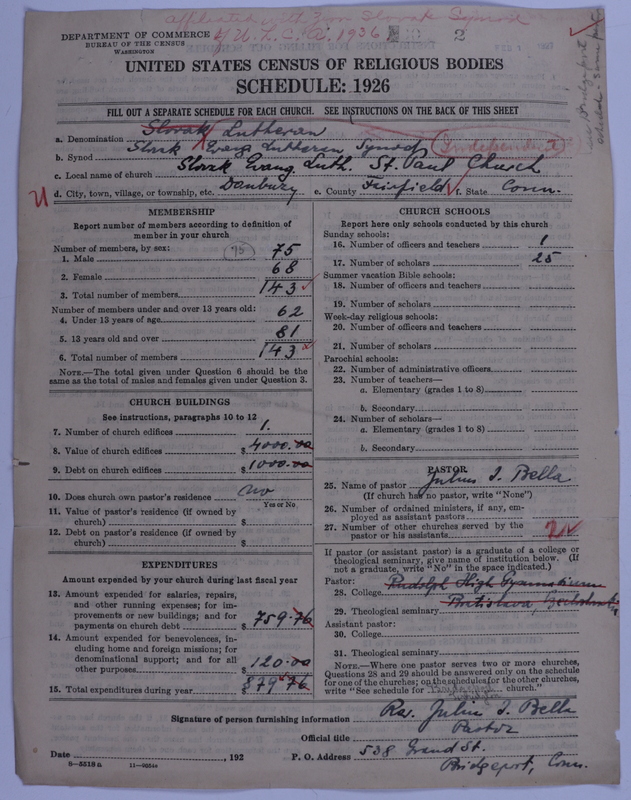 affiliated with Zion Slovak Synod
U. L. C. A. 1936
2
DEPARTMENT OF COMMERCE
BUREAU OF THE CENSUS
WASHINGTON
UNITED STATES CENSUS OF RELIGIOUS BODIES
SCHEDULE: 1926
FILL OUT A SEPARATE SCHEDULE FOR EACH CHURCH. SEE INSTRUCTIONS ON THE BACK OF THIS SHEET
a. Denomination Slovak Lutheran
b. Synod Slovak Evang Lutheran Synod Independent
c. Local name of church Slovak Evang. Luth. St. Paul Church
d. City, town, village, or township, etc. Danbury e. County Fairfield f. State Conn.
MEMBERSHIP
Report number of members according to definition of
member in your church
Number of members, by sex:
1. Male (75) 75
2. Female 68
3. Total number of members 143
Number of members under and over 13 years old:
4. Under 13 years of age 62
5. 13 years old and over 81
6. Total number of members 143
NOTE.—The total given under Question 6 should be the
same as the total of males and females given under Question 3.
CHURCH BUILDINGS
See instructions, paragraphs 10 to 12
7. Number of church edifices 1.
8. Value of church edifices $ 4000.00
9. Debt on church edifices $ 1000.00
10. Does church own pastor's residence no
Yes or No
11. Value of pastor's residence (if owned by
church) $
12. Debt on pastor's residence (if owned by
church) $
EXPENDITURES
Amount expended by your church during last fiscal year
13. Amount expended for salaries, repairs,
and other running expenses; for im-
provements or new buildings; and for
payments on church debt $ 759.76
14. Amount expended for benevolences, in-
cluding home and foreign missions; for
denominational support; and for all
other purposes $ 120.00
15. Total expenditures during year $ 879.76
CHURCH SCHOOLS
Report here only schools conducted by this church
Sunday schools:
16. Number of officers and teachers 1
17. Number of scholars 25
Summer vacation Bible schools:
18. Number of officers and teachers
19. Number of scholars
Week-day religious schools:
20. Number of officers and teachers
21. Number of scholars
Parochial schools:
22. Number of administrative officers
23. Number of teachers—
a. Elementary (grades 1 to 8)
b. Secondary
24. Number of scholars—
a. Elementary (grades 1 to 8)
b. Secondary
PASTOR
25. Name of pastor Julius J. Bella
(If church has no pastor, write "None")
26. Number of ordained ministers, if any, em-
ployed as assistant pastors
27. Number of other churches served by the
pastor or his assistants 2
If pastor (or assistant pastor) is a graduate of a college or
theological seminary, give name of institution below. (If
not a graduate, write "No" in the space indicated.)
Pastor:
28. College Rudolph High Gymnasium
29. Theological seminary Bratislava, Czechoslovakia
Assistant pastor:
30. College
31. Theological seminary
NOTE.—Where one pastor serves two or more churches,
Questions 28 and 29 should be answered only on the schedule
for one of the churches; on the schedules for the other churches,
write "See schedule for Bridgeport church."
Signature of person furnishing information Rev. Julius J. Bella
Official title Pastor
Date , 192 P. O. Address 538 Grand St.
Bridgeport, Conn.
8-5518a 11-9554a